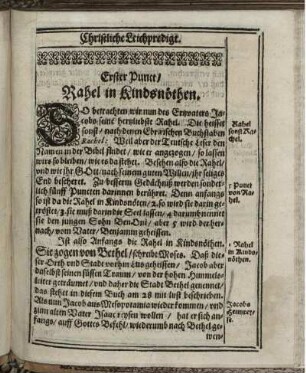 Christliche Leichpredigt.
Erster Punct/
Rahel in Kindsnöthen.
SO betrachten wir nun des Ertzvaters Ja-
cobs seine hertzliebste Rahel. Die heisset
sonst/ nach deren Ebräischen Buchstaben
Rachel: Weil aber der Teutsche Leser den
Namen in der Bibel findet/ wie er angezogen/ so lassen
wirs so bleiben/ wie es da stehet. Besehen also die Rahel/
und wie ihr Gott/ nach seinem guten Willen/ ihr seliges
End bescheret. Zu besserm Gedächtnüß werden sonder-
lich fünff Puncten darinnen berühret. Denn anfangs
so ist da die Rahel in Kindsnöten/ 2. so wird sie darin ge-
tröstet/ 3. sie muß darin die Seel lassen/ 4 darum nennet
sie den jungen Sohn BenOni/ aber 5 wird der her-
nach/ vom Vater/ Benjamin geheissen.
Ist also Anfangs die Rahel in Kindsnöthen.
Sie zogen von Bethel/ schreibt Moses. Daß die-
ser Orth und Stadt vorhin Lus geheissen/ Jacob aber
daselbst seinen süssen Traum/ von der hohen Himmels-
leiter geträumet/ und daher die Stadt Bethel genennet/
das stehet in diesem Buch am 28 mit lust beschrieben.
Als nun Jacob aus Mesopotamia wieder kommen/ und
zum alten Vater Isaac reysen wollen/ hat er sich an-
fangs/ auff Gottes Befehl/ wiederumb nach Bethel ge-
wen-
Rahel
sonst Ra-
chel.
5 Punct
von Ra-
hel.
1 Rahel
in Kinds-
nöthen.
Jacobs